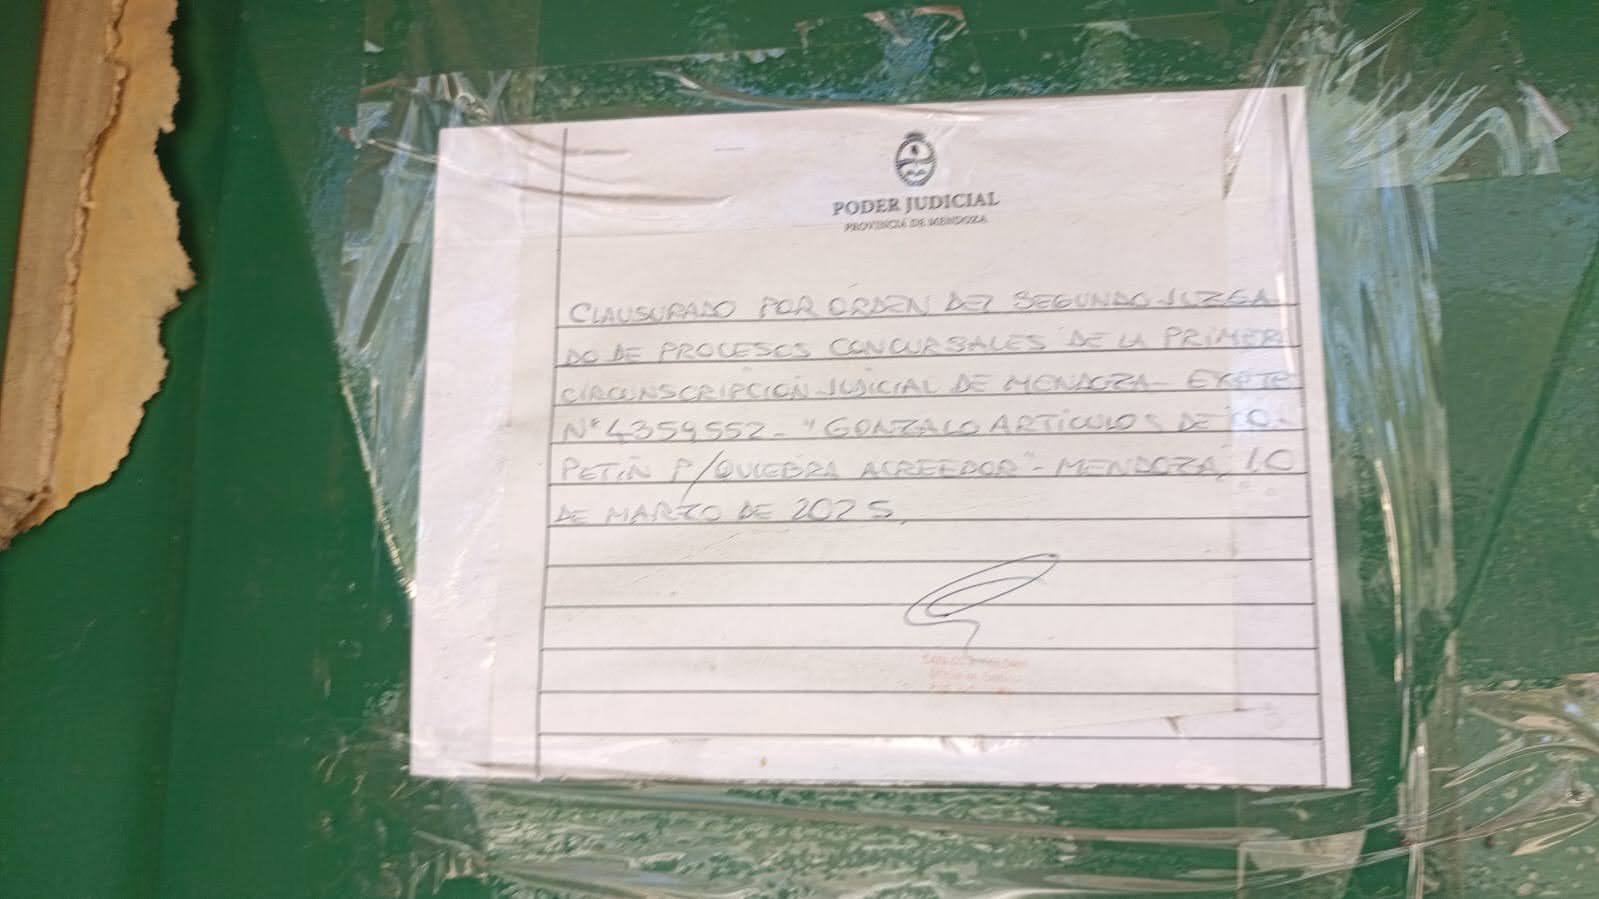 PODER JUDICIAL
PROVINCIA DE MENDOZA
CLAUSURADO POR ORDEN DEL SEGUNDO JUZGA
DO DE PROCESOS CONCURSALES DE LA PRIMER
CIRCUNSCRIPCION JUDICIAL DE MENDOZA- EXPTE
N° 4359552- "GONZALO ARTÍCULOS DE CO-
PETÍN P/QUIEBRA ACREEDOR"- MENDOZA, 10
DE MARZO DE 2025.